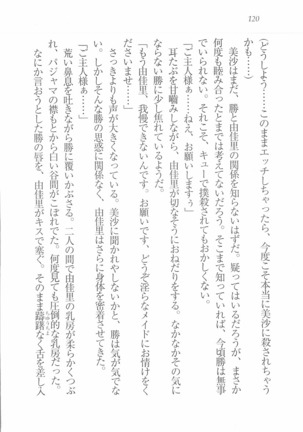 120
(どうしよう……このままエッチしちゃったら、今度こそ本当に美沙に殺されちゃう
かも……)
美沙はまだ、勝と由佳里の関係を知らないはずだ。疑ってはいるだろうが、まさか
何度も睦み合ったとまでは思っていないだろう。そこまで知っていれば、今頃勝は無事
でいられない。それこそ、キューで撲殺されてもおかしくない。
「ご主人様ぁ……ねえ、お願いしますぅ」
耳たぶを甘噛みしながら、由佳里が切なそうにおねだりをする。なかなかその気に
ならない勝に少し焦れているようだ。
「もう由佳里、我慢できないんです。お願いです、どうぞ淫らなメイドにお情けをく
ださいませ……」
さっきよりも声が大きくなっている。美沙に聞かれやしないかと、勝は気が気でな
い。しかしそんな勝の思惑に関係なく、由佳里はさらに身体を密着させてきた。
「ご主人様ぁ……」
荒い鼻息を吐きながら勝に覆いかぶさる。二人の間で由佳里の乳房が柔らかくつぶ
れ、パジャマの襟もとから白い谷間がこぼれでた。何度見ても圧倒的な乳房だった。
なにか言おうとした勝の唇を、由佳里がキスで塞ぐ。そのまま躊躇なく舌を差し入